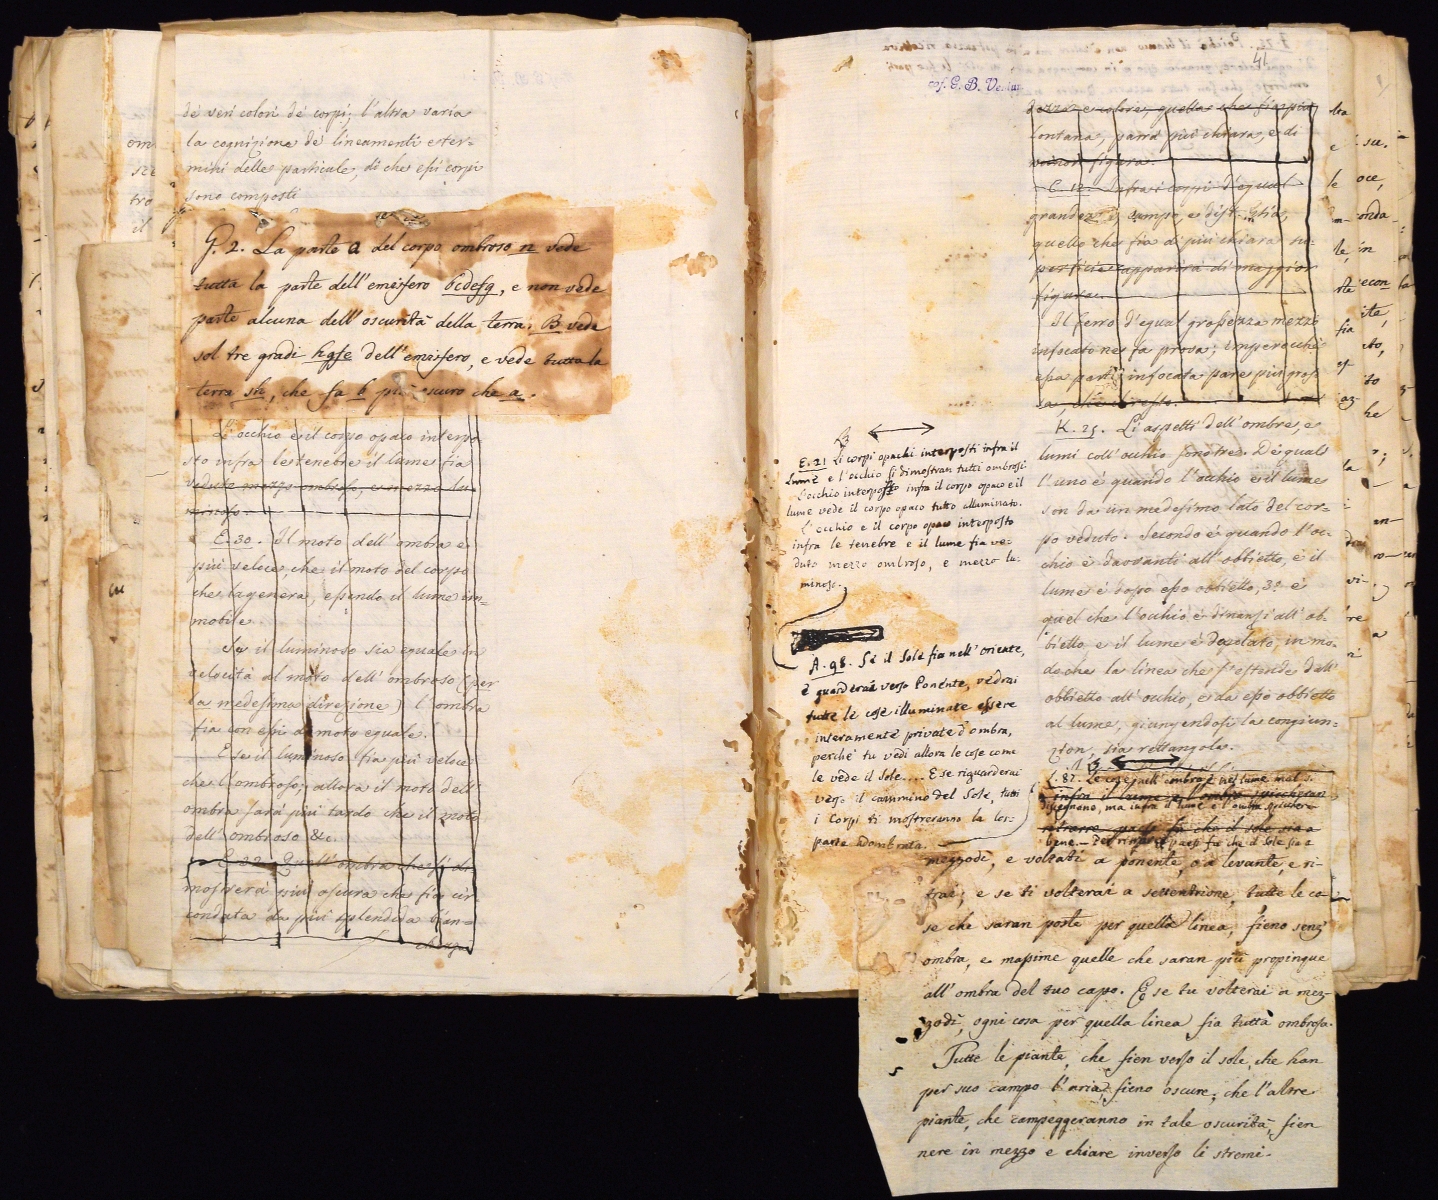 de veri colori de corpi; l'altra varia
la cognizione de lineamenti e ter-
mini delle particule, di che essi corpi
sono composti
G. 2. La parte a del corpo ombroso n vede
tutta la parte dell'emisfero bcdefg, e non vede
parte alcuna dell'oscurità della terra. B vede
sol tre gradi hgfe dell'emisfero, e vede tutta la
terra sh, che fa b più scuro che a.
L'occhio e il corpo opaco interpo
sto infra le tenebre il lume fia
veduto mezzo ombroso, e mezzo lu-
minoso.
E. 30. Il moto dell'ombra è
più veloce, che il moto del corpo
che la genera, essendo il lume im-
mobile
Se il luminoso sia equale in
velocità al moto dell'ombroso (per
la medesima direzione) l'ombra
fia con essi di moto equale.
E se il luminoso fia più veloce
che l'ombroso; allora il moto dell'
ombra sarà più tardo che il moto
dell'ombroso &c.
E. 32. Quell'ombra che si di-
mostrerà più oscura che fia cir-
condata da più splendida bian-
chezza
41
dezza e colore, quella che fia più
lontana, parrà più chiara, e di
minor figura.
E. 12. Infra i corpi d'equal
grandezza e campo, e distantia,
quello che fia di più chiara su-
perficie apparirà di maggior
figura.
Il ferro d'equal grossezza mezzo
infocato ne fa prova; imperocché
essa parte infocata pare più gros
sa, che il resto.
K. 25. Li aspetti dell'ombre, e
lumi coll'occhio sono tre. De quali
l'uno è quando l'occhio e il lume
son da un medesimo lato del cor-
po veduto. Secondo è quando l'oc-
chio è davanti all'obbietto, e il
lume è dopo esso obbietto, 3º è
quel che l'occhio è dinanzi all'ob-
bietto, e il lume è da lato, in mo-
do che la linea che s'estende dall'
obbietto all'occhio, e da esso obbietto
al lume, giungendosi la congiun-
zion, sia rettangola.
E. 21 Li corpi opachi interposti infra il
lume e l'occhio si dimostran tutti ombrosi
L'occhio interposto infra il corpo opaco e il
lume vede il corpo opaco tutto alluminato.
L'occhio e il corpo opaco interposto
infra le tenebre e il lume fia ve-
duto mezzo ombroso, e mezzo lu-
minoso.
A. 98. Se il Sole fia nell'oriente,
e guarderai verso Ponente, vedrai
tutte le cose illuminate essere
interamente private d'ombra,
perché tu vedi allora le cose come
le vede il Sole.... E se riguarderai
verso il cammino del Sole, tutti
i Corpi ti mostreranno la lor
parte adombrata.
infra il lume e l'ombra
ritrarre paesi fa che il sole sia a
bene.
mezzodì, e voltati a ponente, o a levante, e ri-
trai; e se ti volterai a settentrione, tutte le co-
se che saran poste per quella linea, fieno senz'
ombra, e massime quelle che saran più propinque
all'ombra del tuo capo. E se tu volterai a mez-
zodì, ogni cosa per quella linea fia tutta ombrosa.
Tutte le piante, che fien verso il sole, che han
per suo campo l'aria, fieno oscure; che l'altre
piante, che campeggeranno in tale oscurità, fien
nere in mezzo e chiare inverso li stremi.